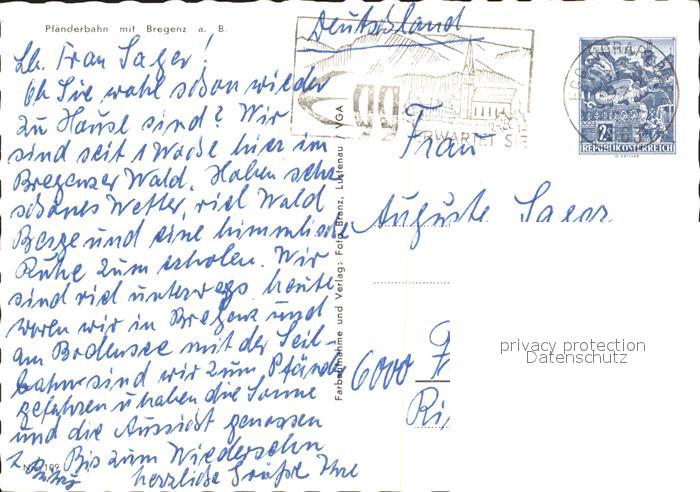 Pfänderbahn mit Bregenz a. B.
Lb. Frau Sager!
Ob Sie wohl schon wieder
zu Hause sind? Wir
sind seit 1 Woche hier im
Bregenzer Wald. Haben sehr
schönes Wetter, viel Wald
Berge und eine himmlische
Ruhe zum erholen. Wir
sind viel unterwegs heute
waren wir in Bregenz und
am Bodensee mit der Seil-
bahn sind wir zum Pfänder
gefahren u haben die Sonne
und die Aussicht genossen
Bis zum Wiedersehn
herzliche Grüße Ihre
Nr. 109
Farbaufnahme und Verlag: Foto Branz, Lustenau
VGA
Deutschland
Egg
ERWARTET SIE
2 S
REPUBLIK ÖSTERREICH
Frau
Auguste Sager
6000 F
Ri
privacy protection
Datenschutz